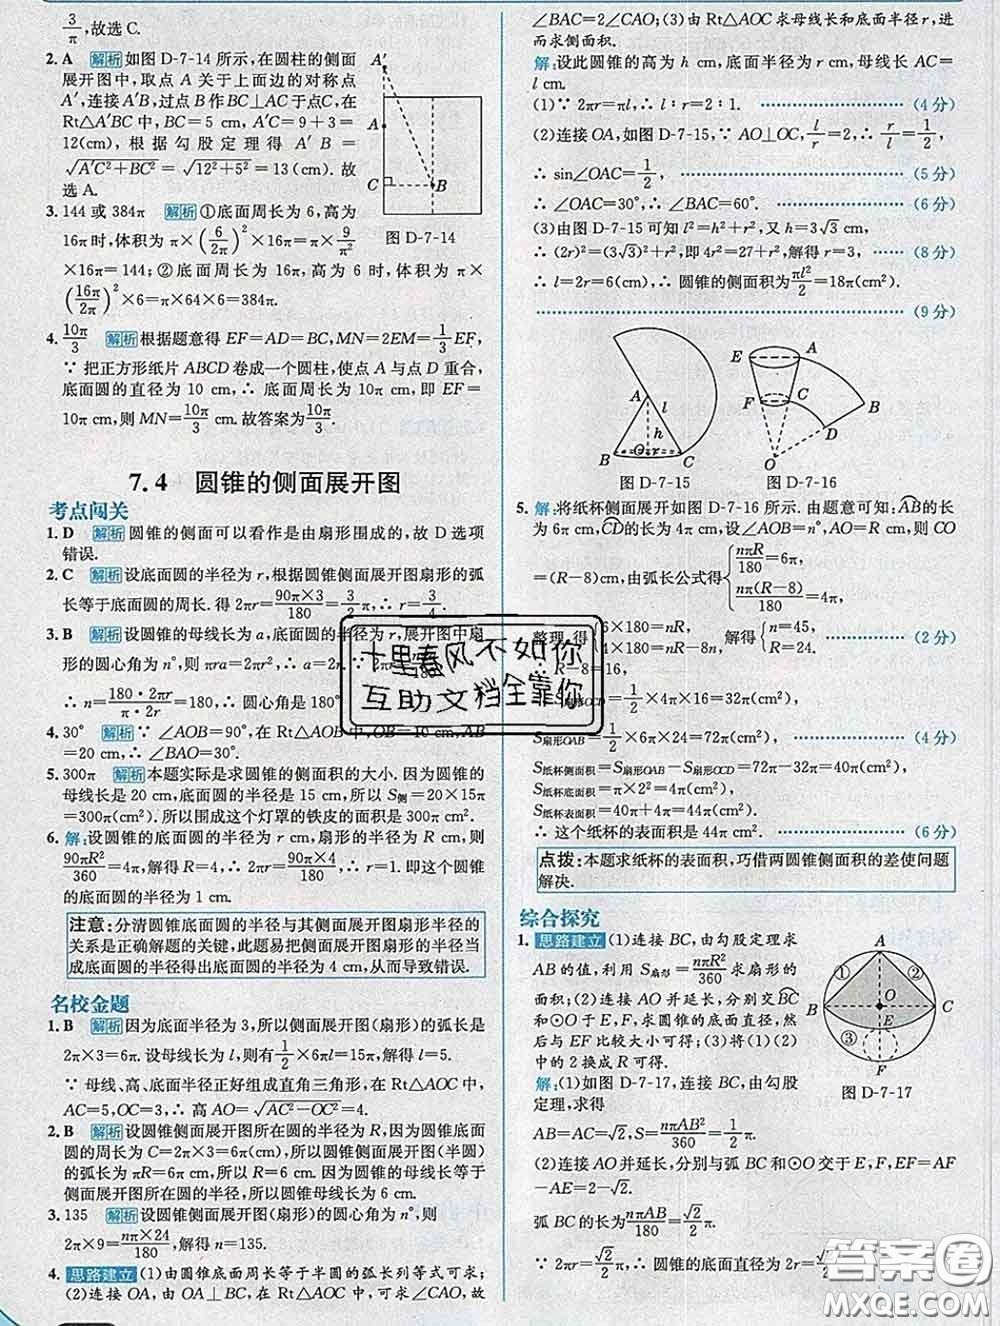 3/π,故选C.
2. A 解析 如图 D-7-14 所示,在圆柱的侧面
展开图中,取点 A 关于上面边的对称点
A′,连接 A′B,过点 B 作 BC⊥AC 于点 C,在
Rt△A′BC 中,BC=5 cm,A′C=9+3=
12(cm),根据勾股定理得 A′B=
√(A′C²+BC²)=√(12²+5²)=13(cm).故
选 A.
A′
A
C
B
图 D-7-14
3. 144 或 384π 解析 ①底面周长为 6,高为
16π时,体积为 π×(6/2π)²×16π=π×9/π²
×16π=144;②底面周长为 16π,高为 6 时,体积为 π×
(16π/2π)²×6=π×64×6=384π.
4. 10π/3 解析 根据题意得 EF=AD=BC,MN=2EM=1/3 EF,
∵ 把正方形纸片 ABCD 卷成一个圆柱,使点 A 与点 D 重合,
底面圆的直径为 10 cm,∴ 底面周长为 10π cm,即 EF=
10π cm,则 MN=10π/3 cm.故答案为10π/3.
7.4 圆锥的侧面展开图
考点闯关
1. D 解析 圆锥的侧面可以看作是由扇形围成的,故 D 选项
错误.
2. C 解析 设底面圆的半径为 r,根据圆锥侧面展开图扇形的弧
长等于底面圆的周长.得 2πr=90π×3/180=3/2 π,∴ r=3/4.
3. B 解析 设圆锥的母线长为 a,底面圆的半径为 r,展开图中扇
形的圆心角为 n°,则 πra=2πr²,∴ a=2r.
∴ n=180·2πr/π·2r=180,∴ 圆心角是 180°.
4. 30° 解析 ∵ ∠AOB=90°,在 Rt△AOB 中,OB=10 cm,AB
=20 cm,∴ ∠BAO=30°.
5. 300π 解析 本题实际是求圆锥的侧面积的大小.因为圆锥的
母线长是 20 cm,底面半径是 15 cm,所以 S侧=20×15π
=300π(cm²).所以围成这个灯罩的铁皮的面积是 300π cm².
6. 解:设圆锥的底面圆的半径为 r cm,扇形的半径为 R cm,则
90πR²/360=4π,解得 R=4,∴ 2πr=90π×4/180,∴ r=1.即这个圆锥
的底面圆的半径为 1 cm.
注意:分清圆锥底面圆的半径与其侧面展开图扇形半径的
关系是正确解题的关键,此题易把侧面展开图扇形的半径当
成底面圆的半径得出底面圆的半径为 4 cm,从而导致错误.
名校金题
1. B 解析 因为底面半径为 3,所以侧面展开图(扇形)的弧长是
2π×3=6π.设母线长为 l,则有1/2×6πl=15π,解得 l=5.
∵ 母线、高、底面半径正好组成直角三角形,在 Rt△AOC 中,
AC=5,OC=3,∴ 高 AO=√(AC²-OC²)=4.
2. B 解析 设圆锥侧面展开图所在圆的半径为 R,因为圆锥底面
圆的周长为 C=2π×3=6π(cm),所以圆锥侧面展开图(半圆)
的弧长为 πR=6π cm,所以 R=6 cm.因为圆锥的母线长等于
侧面展开图所在圆的半径,所以圆锥的母线长为 6 cm.
3. 135 解析 设圆锥侧面展开图(扇形)的圆心角为 n°,则
2π×9=nπ×24/180,解得 n=135.
4. 思路建立 (1)由圆锥底面周长等于半圆的弧长列等式可求;
(2)连接 OA,由 OA⊥BC,在 Rt△AOC 中,可求∠CAO,故
∠BAC=2∠CAO;(3)由 Rt△AOC 求母线长和底面半径 r,进
而求侧面积.
解:设此圆锥的高为 h cm,底面半径为 r cm,母线长 AC=
l cm.
(1)∵ 2πr=πl,∴ l∶r=2∶1. (4分)
(2)连接 OA,如图 D-7-15,∵ AO⊥OC,l/r=2,∴ r/l=1/2,
∴ sin∠OAC=1/2, (5分)
∴ ∠OAC=30°,∴ ∠BAC=60°. (6分)
(3)由图 D-7-15 可知 l²=h²+r²,又 h=3√3 cm,
∴ (2r)²=(3√3)²+r²,即 4r²=27+r²,解得 r=3, (8分)
∴ l=2r=6(cm),∴ 圆锥的侧面积为πl²/2=18π(cm²).
(9分)
A
l
h
B
O
r
C
图 D-7-15
E
A
F
C
B
D
O
图 D-7-16
5. 解:将纸杯侧面展开如图 D-7-16 所示.由题意可知:AB的长
为 6π cm,CD的长为 4π cm,设∠AOB=n°,AO=R cm,则 CO
=(R-8)cm,由弧长公式得{nπR/180=6π,
nπ(R-8)/180=4π,
整理,得{6×180=nR,
4×180=nR-8n, 解得{n=45,
R=24. (2分)
∴ R-8=16,
S扇形OCD=1/2×4π×16=32π(cm²),
S扇形OAB=1/2×6π×24=72π(cm²), (4分)
S纸杯侧面积=S扇形OAB-S扇形OCD=72π-32π=40π(cm²),
S纸杯底面积=π×2²=4π(cm²),
S纸杯表面积=40π+4π=44π(cm²).
∴ 这个纸杯的表面积是 44π cm². (6分)
点拨:本题求纸杯的表面积,巧借两圆锥侧面积的差使问题
解决.
综合探究
1. 思路建立 (1)连接 BC,由勾股定理求
AB 的值,利用 S扇形=nπR²/360求扇形的
面积;(2)连接 AO并延长,分别交BC
和⊙O 于 E,F,求圆锥的底面直径,然
后与 EF 比较大小可得;(3)将(1)(2)
中的 2 换成 R 可得.
A
①
②
O
B
C
E
③
F
图 D-7-17
解:(1)如图 D-7-17,连接 BC,由勾股
定理,求得
AB=AC=√2,S=nπAB²/360=1/2 π.
(2)连接 AO 并延长,分别与弧 BC 和⊙O 交于 E,F,EF=AF
-AE=2-√2,
弧 BC 的长为nπAB/180=√2/2 π.
∵ 2πr=√2/2 π,∴ 圆锥的底面直径为2r=√2/2.
十里春风不如你
互助文档全靠你
答案圈
MXQE.COM